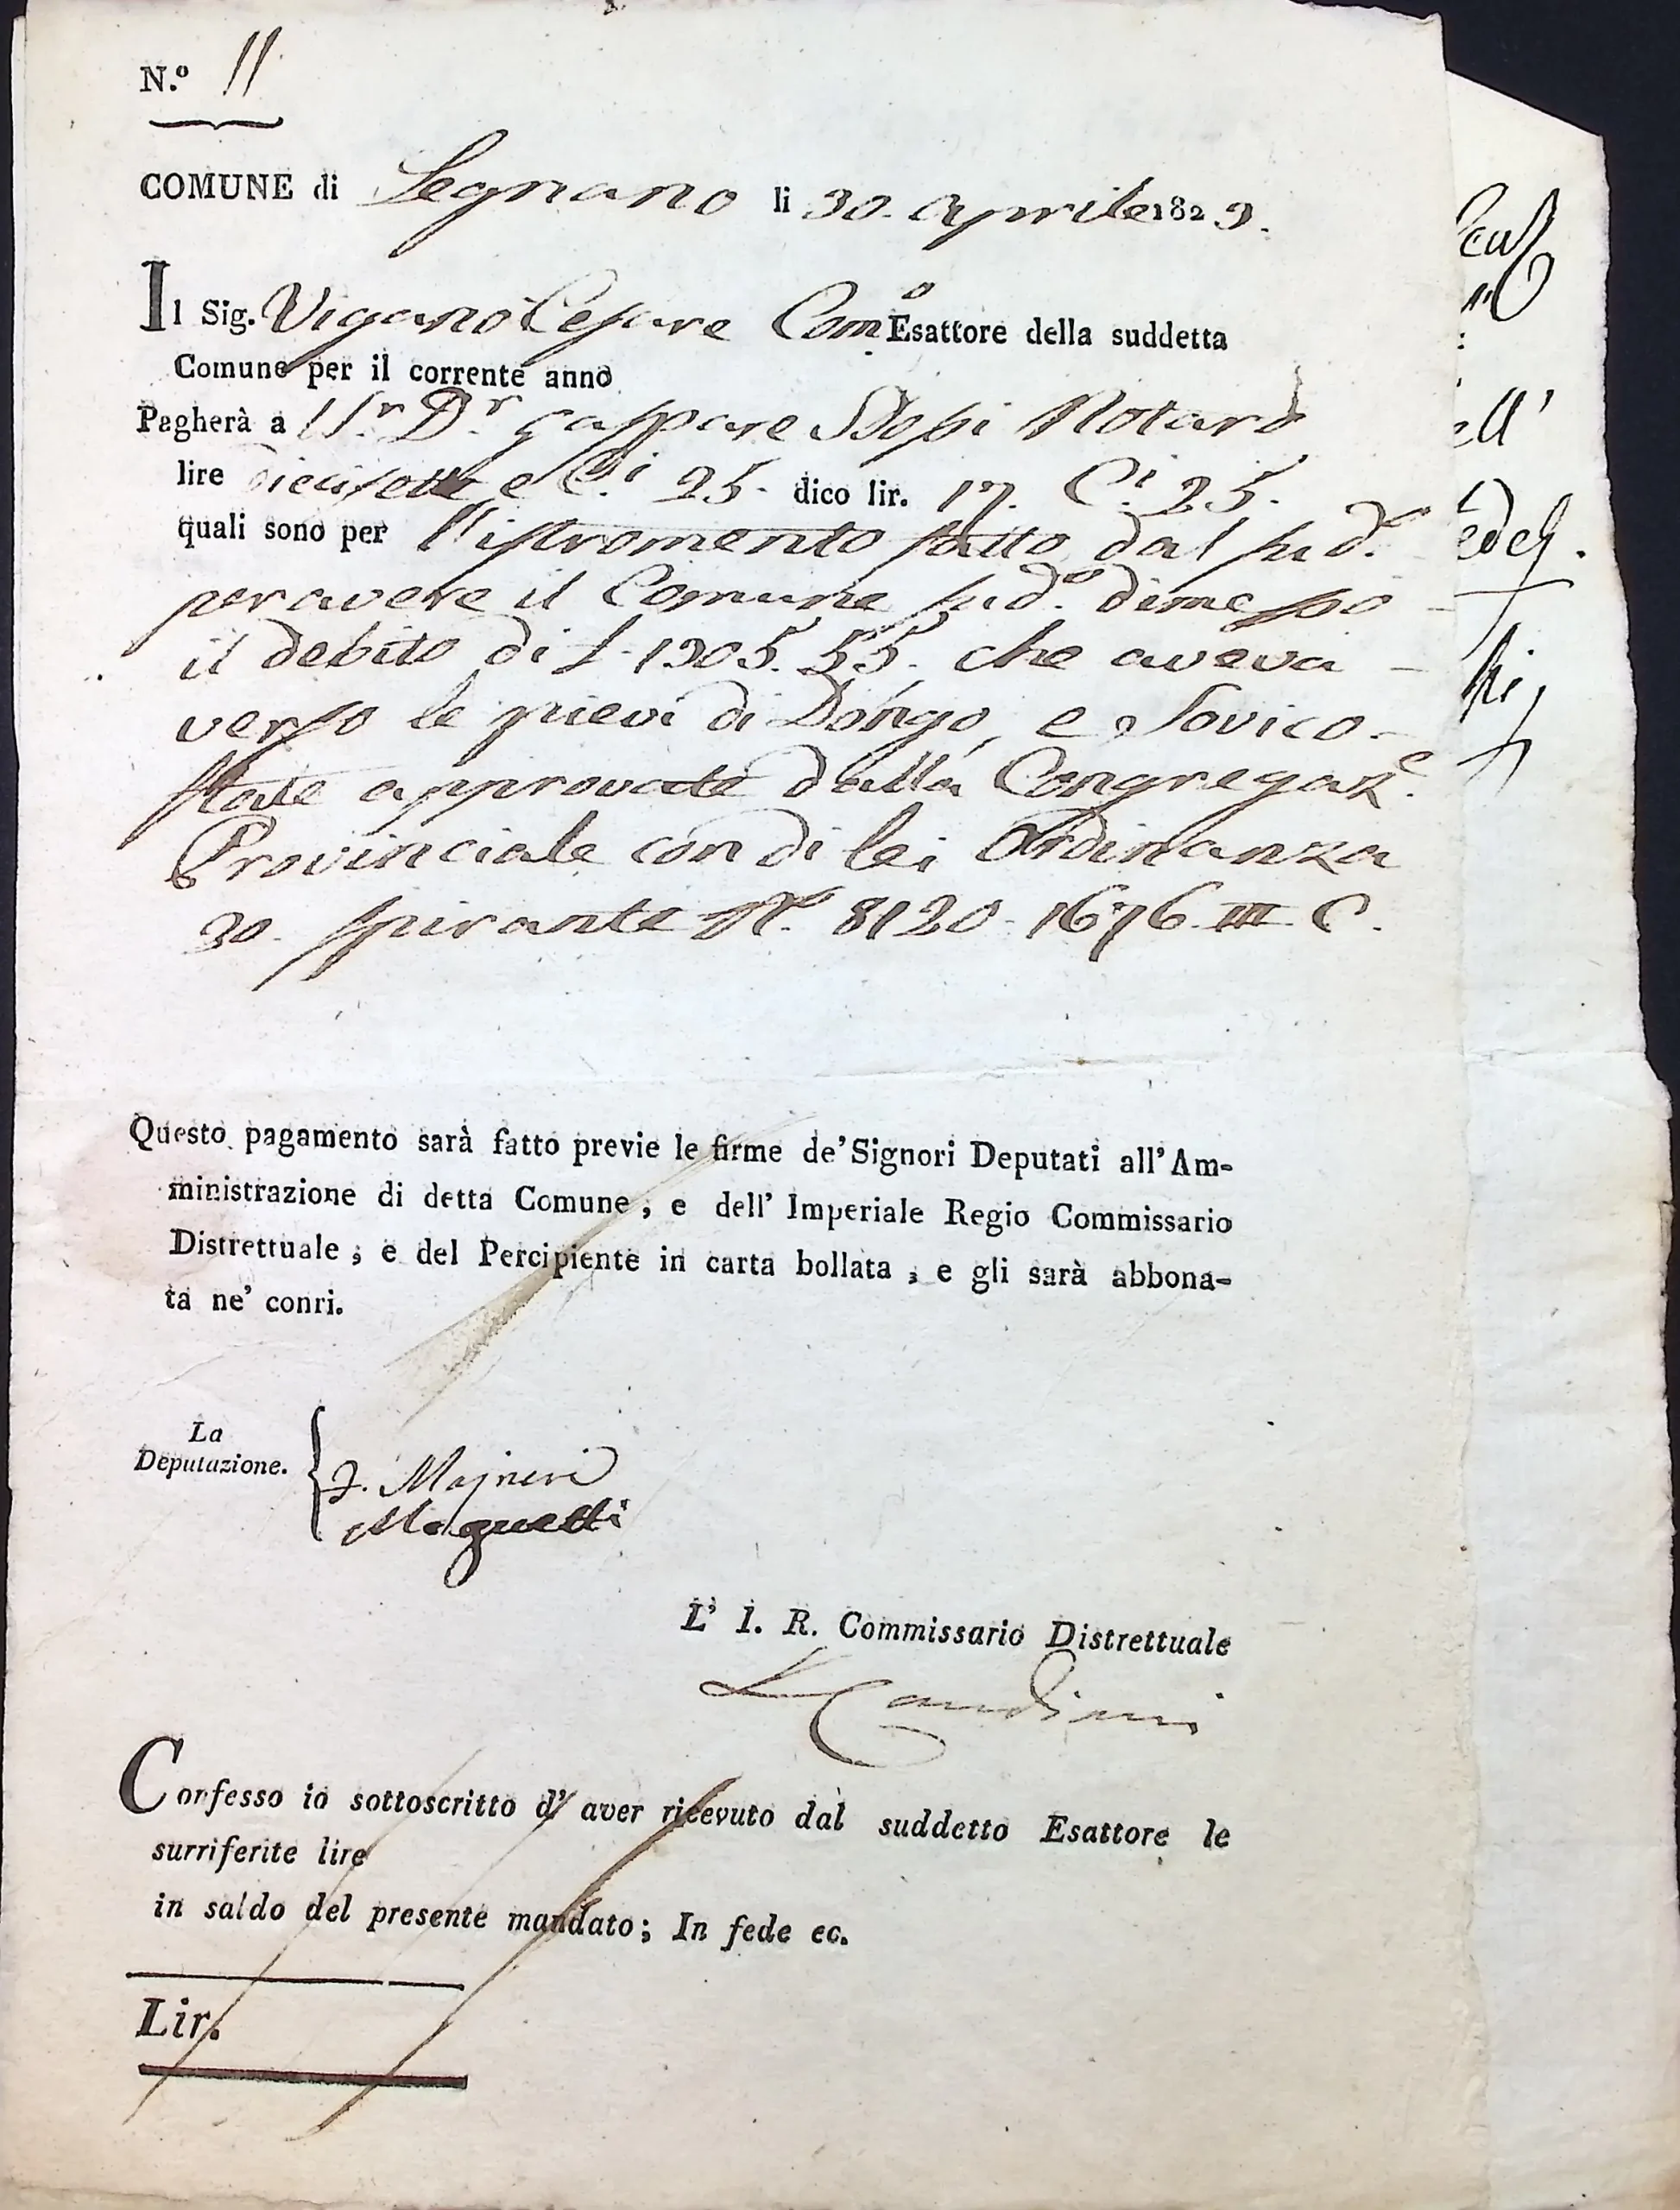 N.º 11
COMUNE di Legnano li 30. Aprile 1823.
Il Sig. Viganò Cesare Com.º Esattore della suddetta
Comune per il corrente anno
Pagherà a l Sr. Dr. Gaspare Notaro
lire diecisette e C.i 25. dico lir. 17. C.i 25.
quali sono per l'istromento fatto dal sud.º
per avere il Comune sud.º dimesso
il debito di £. 1305. 55. che aveva
verso le pievi di Dongo, e Sovico
state approvate dalla Congregaz.e
Provinciale con di lei Ordinanza
30. spirante N.º 8120-1676. III. C.
Questo pagamento sarà fatto previe le firme de' Signori Deputati all' Am-
ministrazione di detta Comune, e dell' Imperiale Regio Commissario
Distrettuale, e del Percipiente in carta bollata, e gli sarà abbona-
ta ne' conri.
La
Deputazione.
Majneri
Magnetti
L' I. R. Commissario Distrettuale
Candiani
Confesso io sottoscritto d' aver ricevuto dal suddetto Esattore le
surriferite lire
in saldo del presente mandato; In fede ec.
Lir.